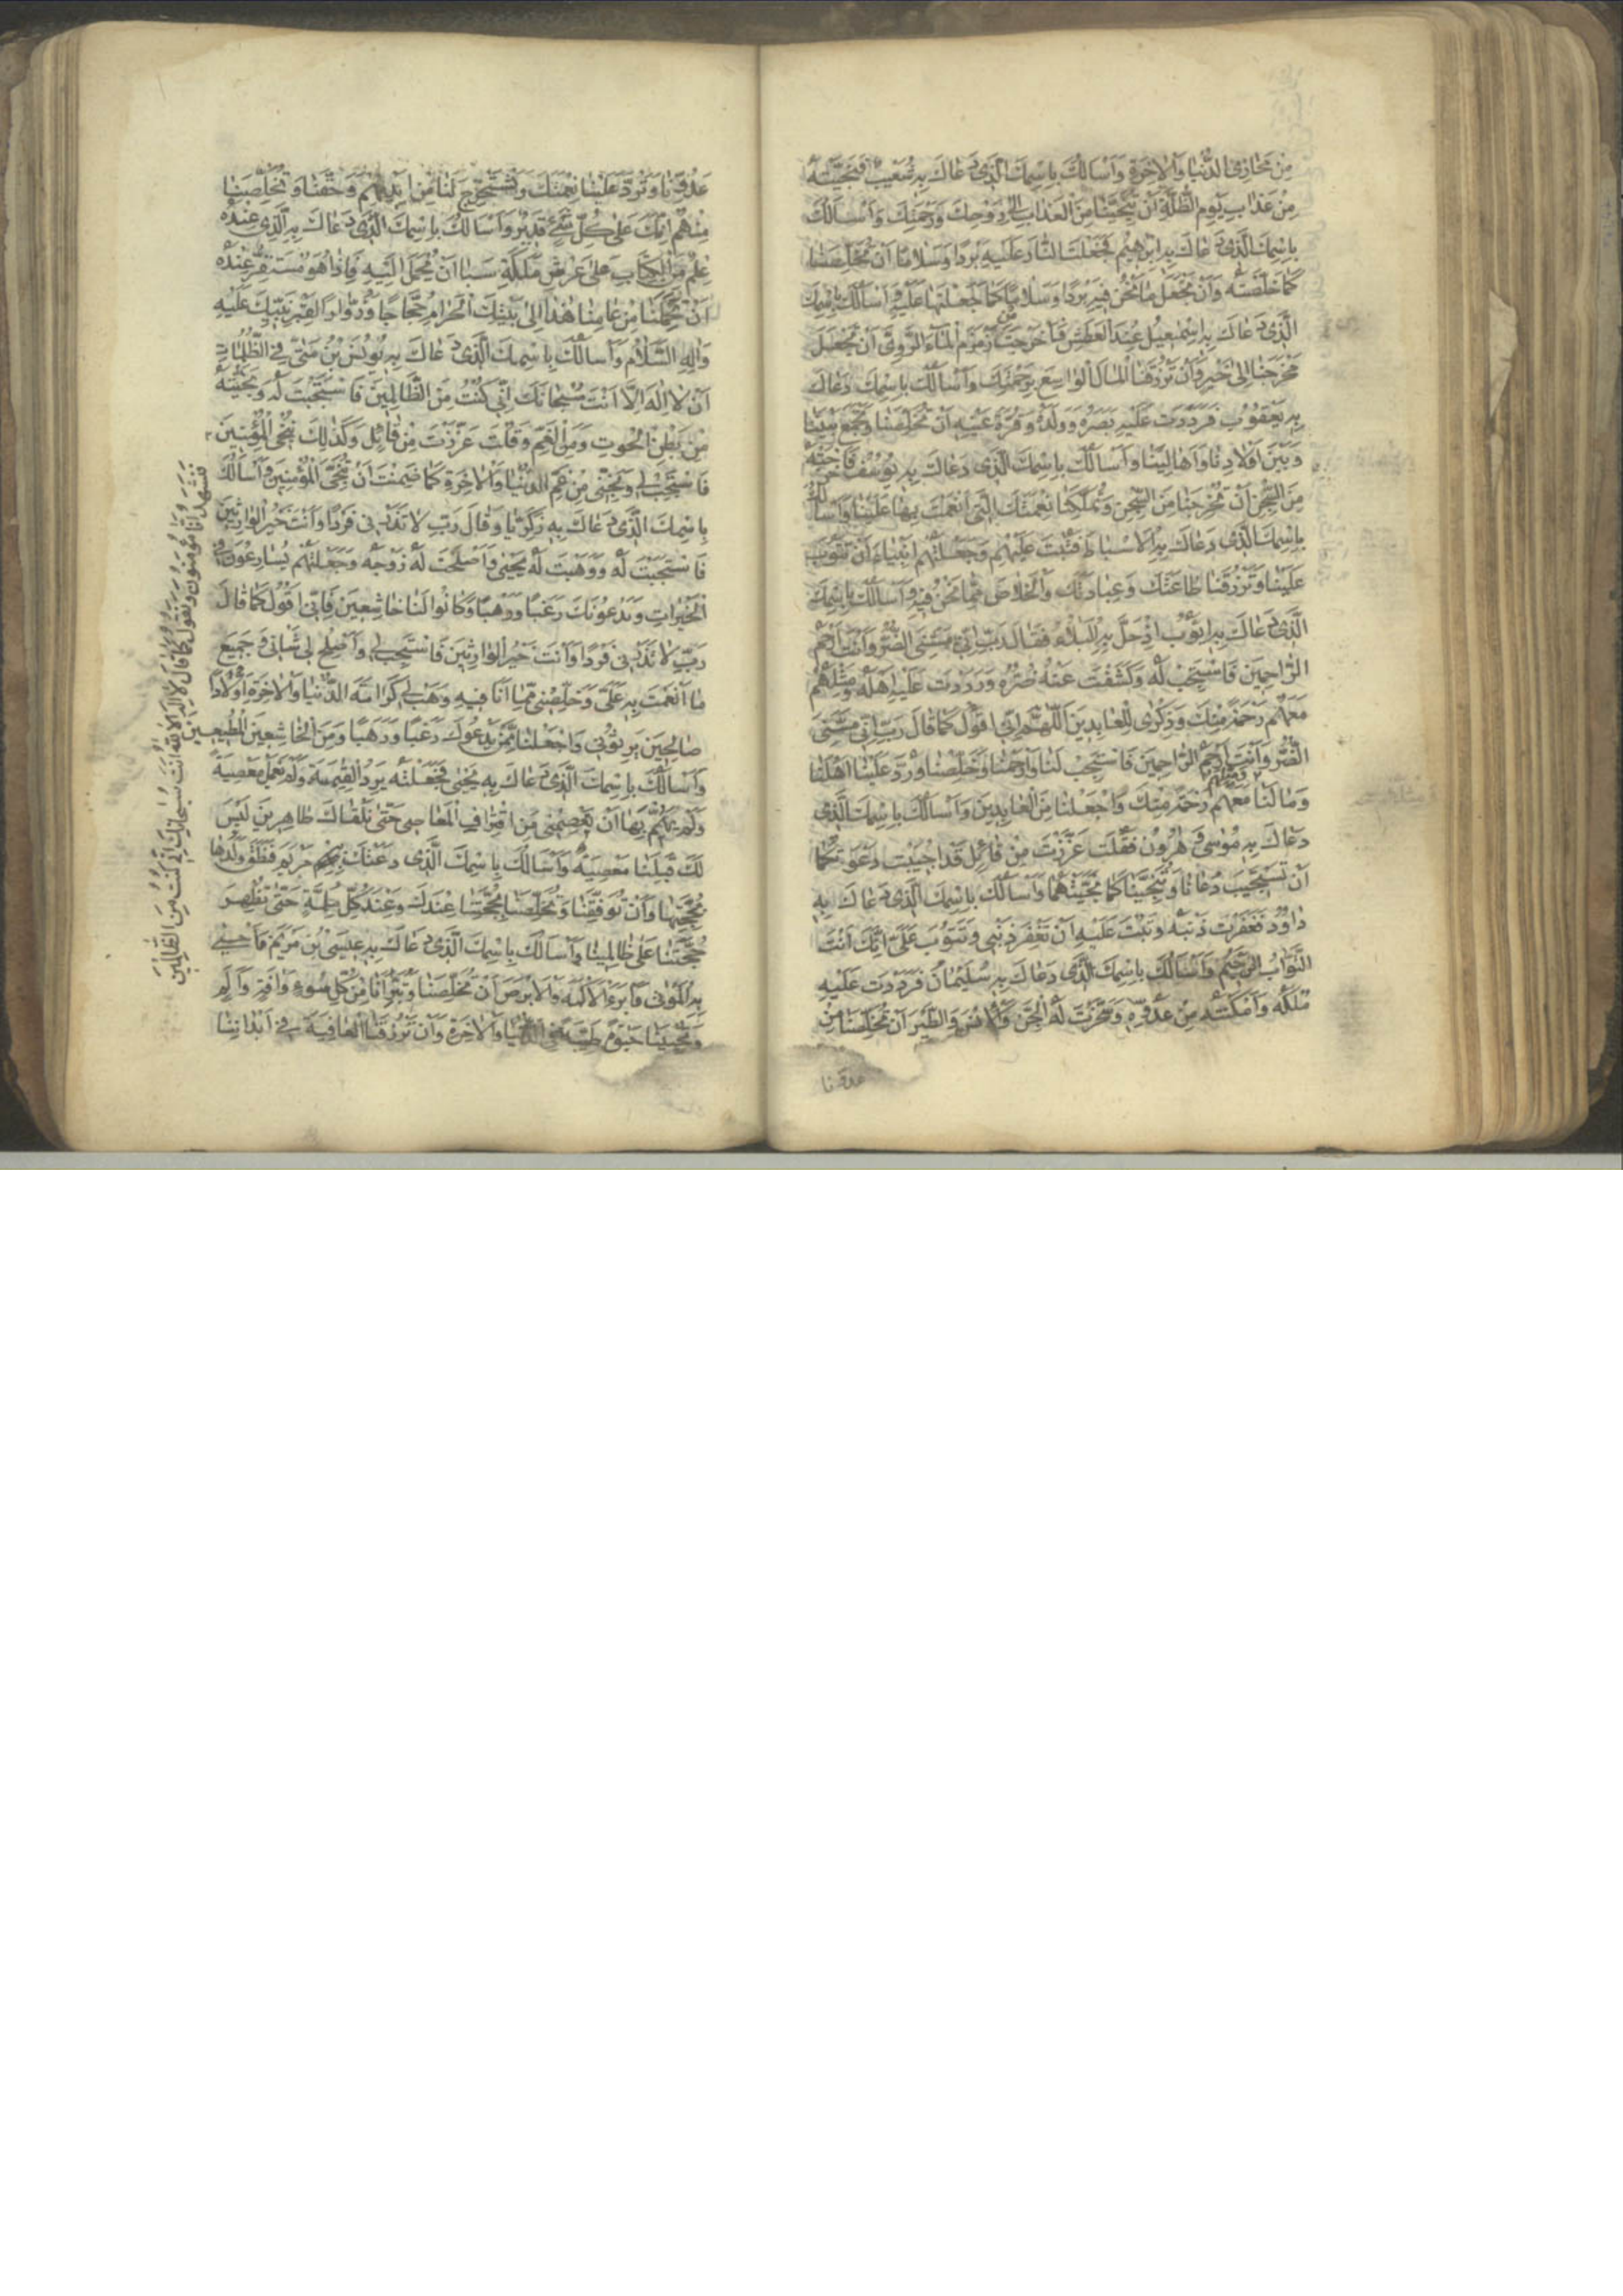 مِنْ مَخَازِی الدُّنْیَا وَالْاٰخِرَةِ وَاَسْاَلُكَ بِاسْمِكَ الَّذِی دَعَاكَ بِهِ شُعَیْبٌ فَنَجَّیْتَهُ
مِنْ عَذَابِ یَوْمِ الظُّلَّةِ اَنْ تُنَجِّیَنَا مِنَ الْعَذَابِ اِلٰی رَوْحِكَ وَرَحْمَتِكَ وَاَسْاَلُكَ
بِاسْمِكَ الَّذِی دَعَاكَ بِهِ اِبْرٰهِیْمُ فَجَعَلْتَ النَّارَ عَلَیْهِ بَرْدًا وَسَلَامًا اَنْ تُخَلِّصَنَا
كَمَا خَلَّصْتَهُ وَاَنْ تَجْعَلَ مَا نَحْنُ فِیهِ بَرْدًا وَسَلَامًا كَمَا جَعَلْتَهَا عَلَیْهِ وَاَسْاَلُكَ بِاسْمِكَ
الَّذِی دَعَاكَ بِهِ اِسْمٰعِیلُ عِنْدَ الْعَطَشِ فَاَخْرَجْتَ مِنْ زَمْزَمَ الْمَاءَ الرَّوِیَّ اَنْ تَجْعَلَ
مَخْرَجَنَا اِلٰی خَیْرٍ وَاَنْ تَرْزُقَنَا الْمَالَ الْوَاسِعَ بِرَحْمَتِكَ وَاَسْاَلُكَ بِاسْمِكَ دَعَاكَ
بِهِ یَعْقُوبُ فَرَدَدْتَ عَلَیْهِ بَصَرَهُ وَوَلَدَهُ وَقُرَّةَ عَیْنِهِ اَنْ تُخَلِّصَنَا وَتَجْمَعَ بَیْنَنَا
وَبَیْنَ اَوْلَادِنَا وَاَهَالِینَا وَاَسْاَلُكَ بِاسْمِكَ الَّذِی دَعَاكَ بِهِ یُوسُفُ فَاَخْرَجْتَهُ
مِنَ السِّجْنِ اَنْ تُخْرِجَنَا مِنَ السِّجْنِ وَتُمَلِّكَنَا نِعْمَتَكَ الَّتِی اَنْعَمْتَ بِهَا عَلَیْنَا وَاَسْاَلُكَ
بِاسْمِكَ الَّذِی دَعَاكَ بِهِ الْاَسْبَاطُ فَتُبْتَ عَلَیْهِمْ وَجَعَلْتَهُمْ اَنْبِیَاءَ اَنْ تَتُوبَ
عَلَیْنَا وَتَرْزُقَنَا طَاعَتَكَ وَعِبَادَتَكَ وَالْخَلَاصَ مِمَّا نَحْنُ فِیهِ وَاَسْاَلُكَ بِاسْمِكَ
الَّذِی دَعَاكَ بِهِ اَیُّوبُ اِذْ حَلَّ بِهِ الْبَلَاءُ فَقَالَ رَبِّ اِنِّی مَسَّنِیَ الضُّرُّ وَاَنْتَ اَرْحَمُ
الرَّاحِمِینَ فَاسْتَجَبْتَ لَهُ وَكَشَفْتَ عَنْهُ ضُرَّهُ وَرَدَدْتَ عَلَیْهِ اَهْلَهُ وَمِثْلَهُمْ
مَعَهُمْ رَحْمَةً مِنْكَ وَذِكْرٰی لِلْعَابِدِینَ اَللّٰهُمَّ اِنِّی اَقُولُ كَمَا قَالَ رَبِّ اِنِّی مَسَّنِیَ
الضُّرُّ وَاَنْتَ اَرْحَمُ الرَّاحِمِینَ فَاسْتَجِبْ لَنَا وَارْحَمْنَا وَخَلِّصْنَا وَرُدَّ عَلَیْنَا اَهْلَنَا
وَمَالَنَا وَمِثْلَهُمْ مَعَهُمْ رَحْمَةً مِنْكَ وَاجْعَلْنَا مِنَ الْعَابِدِینَ وَاَسْاَلُكَ بِاسْمِكَ الَّذِی
دَعَاكَ بِهِ مُوسٰی وَهٰرُونُ فَقُلْتَ عَزَّزْتَ مِنْ قَائِلٍ قَدْ اُجِیبَتْ دَعْوَتُكُمَا
اَنْ تَسْتَجِیبَ دُعَانَا وَتُنَجِّیَنَا كَمَا نَجَّیْتَهُمَا وَاَسْاَلُكَ بِاسْمِكَ الَّذِی دَعَاكَ بِهِ
دَاوُدُ فَغَفَرْتَ ذَنْبَهُ وَتُبْتَ عَلَیْهِ اَنْ تَغْفِرَ ذَنْبِی وَتَتُوبَ عَلَیَّ اِنَّكَ اَنْتَ
التَّوَّابُ الرَّحِیمُ وَاَسْاَلُكَ بِاسْمِكَ الَّذِی دَعَاكَ بِهِ سُلَیْمَانُ فَرَدَدْتَ عَلَیْهِ
مُلْكَهُ وَاَمْكَنْتَهُ مِنْ عَدُوِّهِ وَسَخَّرْتَ لَهُ الْجِنَّ وَالْاِنْسَ وَالطَّیْرَ اَنْ تُخَلِّصَنَا مِنْ
عدونا
عَدُوِّنَا وَتَرُدَّ عَلَیْنَا نِعْمَتَكَ وَتَسْتَخْرِجَ لَنَا مِنْ اَیْدِیهِمْ وَحَقَّنَا وَتُخَلِّصَنَا
مِنْهُمْ اِنَّكَ عَلٰی كُلِّ شَیْءٍ قَدِیرٌ وَاَسْاَلُكَ بِاسْمِكَ الَّذِی دَعَاكَ بِهِ الَّذِی عِنْدَهُ
عِلْمٌ مِنَ الْكِتَابِ عَلٰی عَرْشِ مَلِكَةِ سَبَا اَنْ یُحْمَلَ اِلَیْهِ فَاِذَا هُوَ مُسْتَقِرٌّ عِنْدَهُ
اَنْ تَحْمِلَنَا مِنْ عَامِنَا هٰذَا اِلٰی بَیْتِكَ الْحَرَامِ حُجَّاجًا وَزُوَّارًا لِقَبْرِ نَبِیِّكَ عَلَیْهِ
وَاٰلِهِ السَّلَامُ وَاَسْاَلُكَ بِاسْمِكَ الَّذِی دَعَاكَ بِهِ یُونُسُ بْنُ مَتّٰی فِی الظُّلُمَاتِ
اَنْ لَا اِلٰهَ اِلَّا اَنْتَ سُبْحَانَكَ اِنِّی كُنْتُ مِنَ الظَّالِمِینَ فَاسْتَجَبْتَ لَهُ وَنَجَّیْتَهُ
مِنْ بَطْنِ الْحُوتِ وَمِنَ الْغَمِّ وَقُلْتَ عَزَّزْتَ مِنْ قَائِلٍ وَكَذٰلِكَ نُنْجِی الْمُؤْمِنِینَ
فَاسْتَجِبْ لِی وَنَجِّنِی مِنْ غَمِّ الدُّنْیَا وَالْاٰخِرَةِ كَمَا ضَمِنْتَ اَنْ تُنَجِّیَ الْمُؤْمِنِینَ وَاَسْاَلُكَ
بِاسْمِكَ الَّذِی دَعَاكَ بِهِ زَكَرِیَّا وَقَالَ رَبِّ لَا تَذَرْنِی فَرْدًا وَاَنْتَ خَیْرُ الْوَارِثِینَ
فَاسْتَجَبْتَ لَهُ وَوَهَبْتَ لَهُ یَحْیٰی وَاَصْلَحْتَ لَهُ زَوْجَهُ وَجَعَلْتَهُمْ یُسَارِعُونَ فِی
الْخَیْرَاتِ وَیَدْعُونَكَ رَغَبًا وَرَهَبًا وَكَانُوا لَنَا خَاشِعِینَ فَاِنِّی اَقُولُ كَمَا قَالَ
رَبِّ لَا تَذَرْنِی فَرْدًا وَاَنْتَ خَیْرُ الْوَارِثِینَ فَاسْتَجِبْ لِی وَاَصْلِحْ لِی شَانِی وَجَمِیعَ
مَا اَنْعَمْتَ بِهِ عَلَیَّ وَخَلِّصْنِی مِمَّا اَنَا فِیهِ وَهَبْ لِی كَرَامَةَ الدُّنْیَا وَالْاٰخِرَةِ وَاَوْلَادًا
صَالِحِینَ یَرِثُونِی وَاجْعَلْنَا مِمَّنْ یَدْعُوكَ رَغَبًا وَرَهَبًا وَمِنَ الْخَاشِعِینَ الْمُطِیعِینَ
وَاَسْاَلُكَ بِاسْمِكَ الَّذِی دَعَاكَ بِهِ یَحْیٰی فَجَعَلْتَهُ یَرِدُ الْقِیٰمَةَ وَلَمْ یَعْمَلْ مَعْصِیَةً
وَلَمْ یَهُمَّ بِهَا اَنْ تَعْصِمَنِی مِنِ اقْتِرَافِ الْمَعَاصِی حَتّٰی نَلْقَاكَ طَاهِرِینَ لَیْسَ
لَكَ قِبَلَنَا مَعْصِیَةٌ وَاَسْاَلُكَ بِاسْمِكَ الَّذِی دَعَتْكَ بِهِ مَرْیَمُ فَنَطَقَ وَلَدُهَا
بِحُجَّتِهَا وَاَنْ تُوَفِّقَنَا وَتُخَلِّصَنَا بِحُجَّتِنَا عِنْدَكَ وَعِنْدَ كُلِّ مُسْلِمَةٍ حَتّٰی تَظْهَرَ
حُجَّتُنَا عَلٰی ظَالِمِینَا وَاَسْاَلُكَ بِاسْمِكَ الَّذِی دَعَاكَ بِهِ عِیسَی بْنُ مَرْیَمَ فَاَحْیٰی
بِهِ الْمَوْتٰی وَاَبْرَءَ الْاَكْمَهَ وَالْاَبْرَصَ اَنْ تُخَلِّصَنَا وَتُبَرِّئَنَا مِنْ كُلِّ سُوءٍ وَاٰفَةٍ وَاَلَمٍ
وَتُحْیِیَنَا حَیٰوةً طَیِّبَةً فِی الدُّنْیَا وَالْاٰخِرَةِ وَاَنْ تَرْزُقَنَا الْعَافِیَةَ فِی اَبْدَانِنَا
نَشْهَدُ اَنَّا مُؤْمِنُونَ وَنَقُولُ كَمَا قَالَ لَا اِلٰهَ اِلَّا اللهُ اَنْتَ سُبْحَانَكَ اِنِّی كُنْتُ مِنَ الظَّالِمِینَ